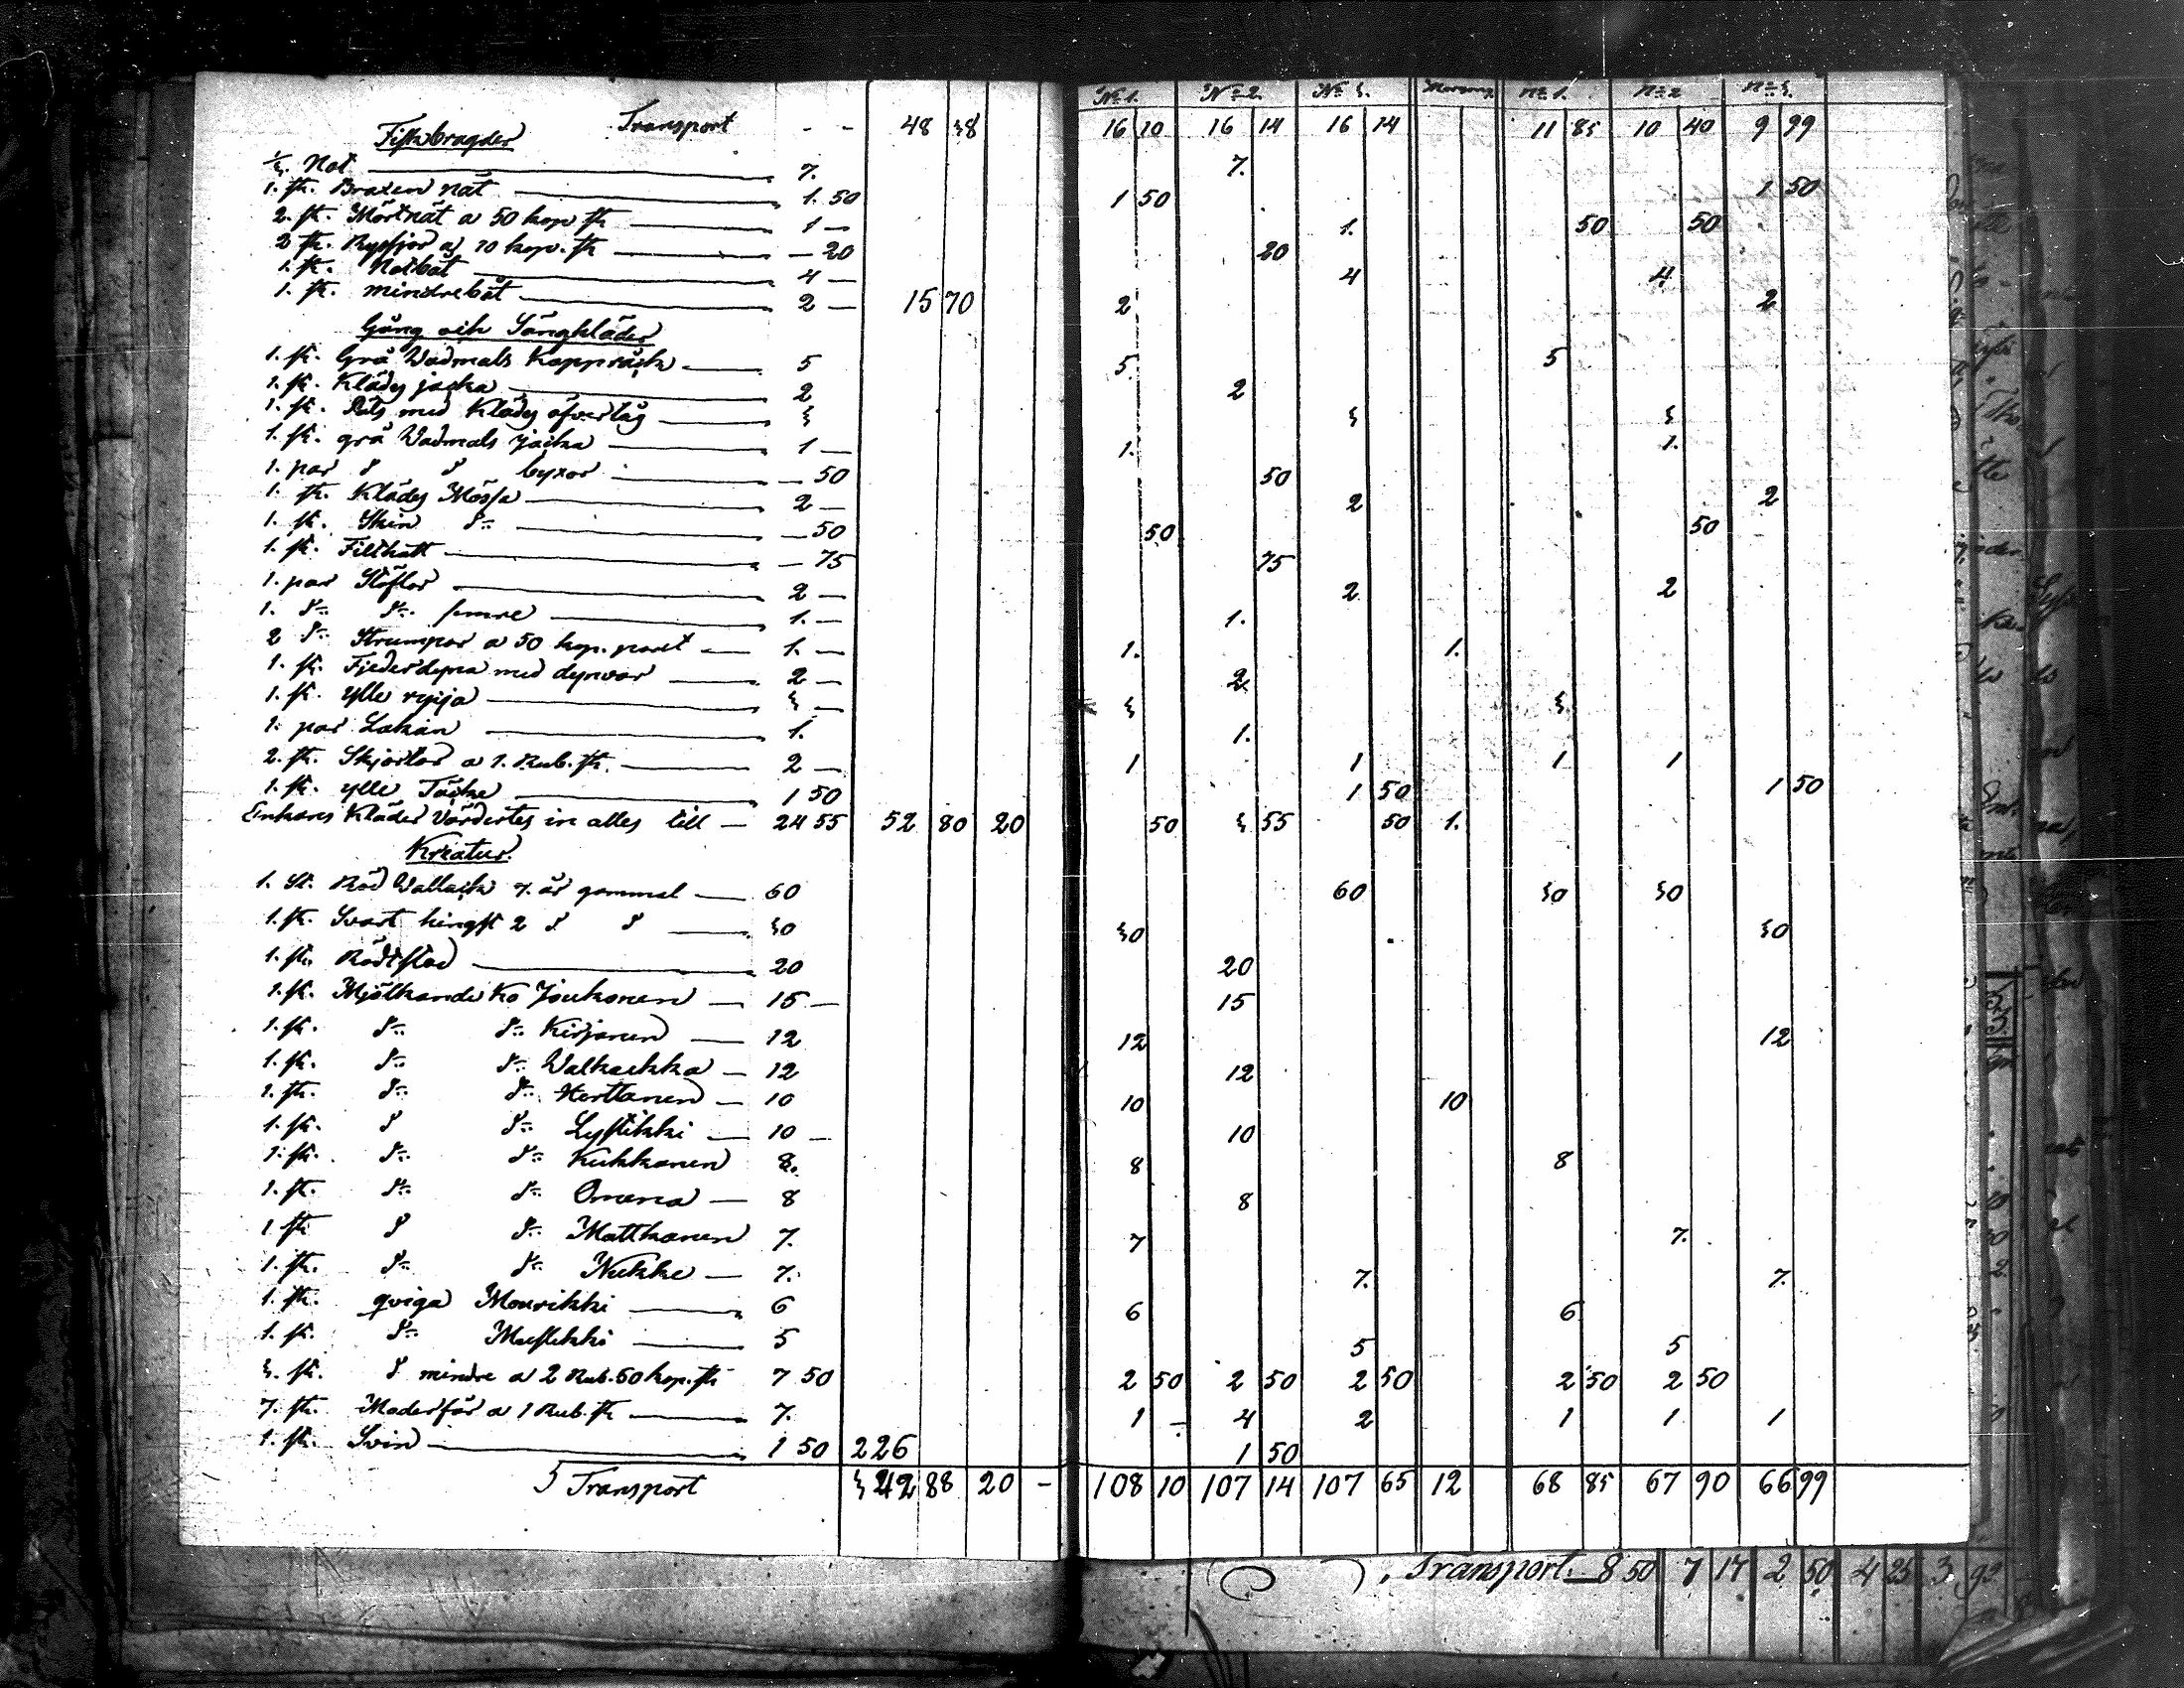 No 1. No 2. No 3. No 1. No 2 No 3.
Transport - - 48 38 16 10 16 14 16 14 11 85 10 40 9 99
Fiskbragder
1/3 Not 7. 7.
1. st. Braxen nät 1. 50 1 50 1 50
2. st. Mörtnät a 50 kop st 1 — 1. 50 50
2 st. Ryssjor a 10 kop. st — 20 20
1. st. Notbåt 4 — 4 4
1. st. mindre båt 2 — 15 70 2 2
Gång och Sängkläder
1. st. Grå Wadmals Kappråck 5 5 5
1. st. Klädes jacka 2 2
1. st. Pels med Klädes öfvertåg 3 3 3
1. st. grå Wadmals jacka 1 — 1. 1.
1. par d d byxor — 50 50
1. st. Klädes Mössa 2 — 2 2
1. st. Skin do — 50 50 50
1. st. Filthatt — 75 75
1. par Stöflor 2 — 2 2
1. do do. semre 1. — 1.
2 do Strumpor a 50 kop. paret 1. — 1. 1.
1. st. Fjederdyna med dynvar 2 — 2
1. st. ylle ryija 3 — 3 3
1. par Lakan 1. 1.
2. st. Skjortor a 1. Rub. st. 2 — 1 1 1 1
1. st. ylle Täcke 1 50 1 50 1 50
Enkans Kläder Värdertes in alles till — 24 55 52 80 20 50 3 55 50 1.
Kreatur.
1. st. Röd Wallack 7. år gammal 60 60 30 30
1. st. Svart hingst 2 d d 30 30 30
1. st. Rödt stod 20 20
1. st. Mjölkande Ko Joukonen — 15 — 15
1. st. do do Kirjonen 12 12 12
1. st. do do Walkaekka — 12 12
1. st. do do Herttanen — 10 10 10
1. st. d do Lystikki — 10 — 10
1. st. do do Kukkonen 8. 8 8
1. st. do do Omena — 8 8
1 st d do Matthanen 7. 7 7.
1. st. do do Nukke — 7. 7. 7.
1. st. qviga Mourikki 6 6 6
1. st. do Mustikki 5 5 5
3. st. d mindre a 2 Rub. 50 kop. st 7 50 2 50 2 50 2 50 2 50 2 50
7. st. Moderfår a 1 Rub. st 7. 1 - 4 2 1 1 1
1. st. Svin 1 50 226 1 50
Transport 342 88 20 - 108 10 107 14 107 65 12 68 85 67 90 66 99
Transport. 8 50 7 17 2 50 4 25 3 92